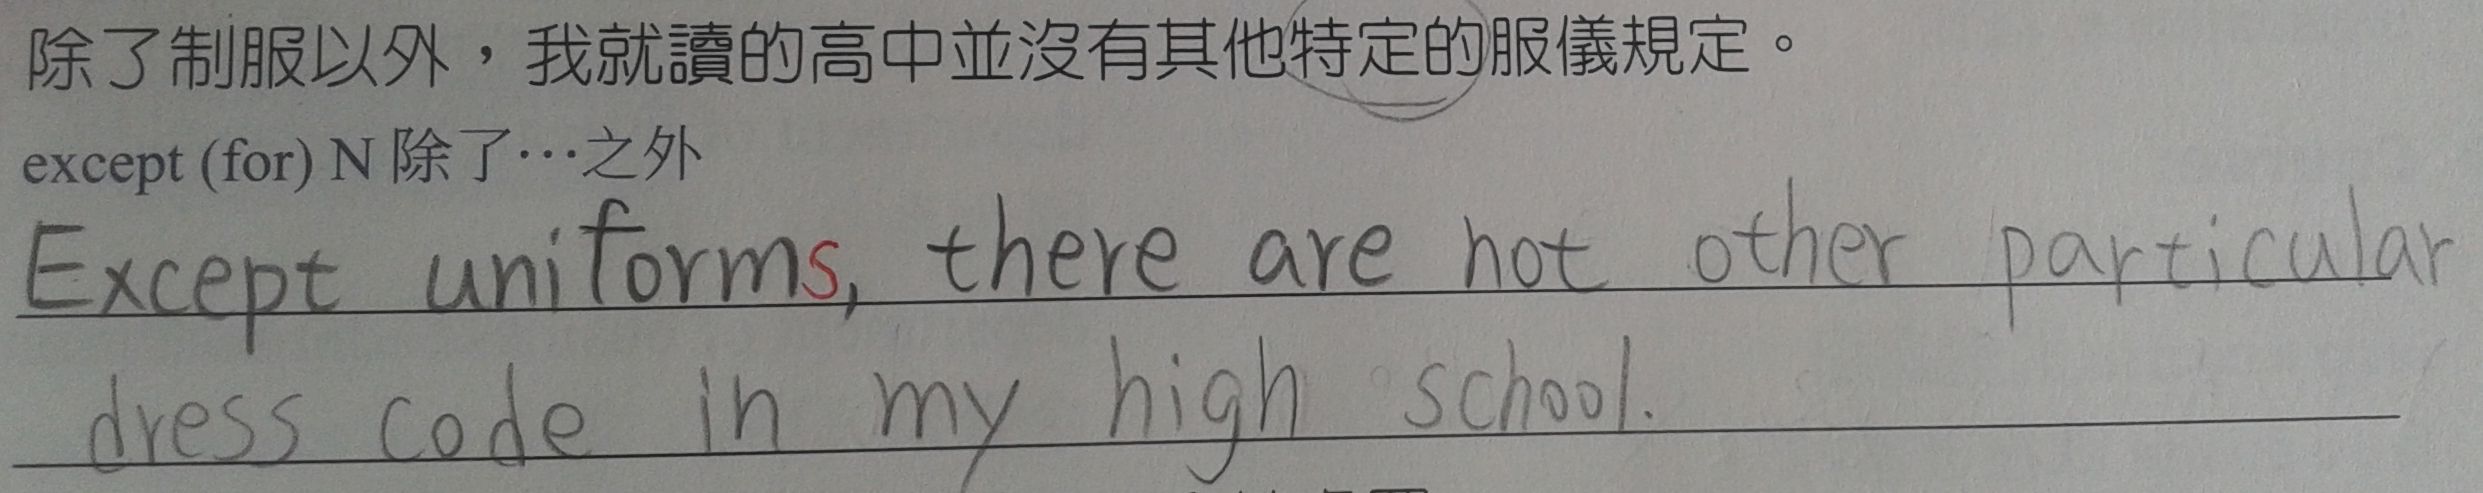 除了制服以外，我就讀的高中並沒有其他特定的服儀規定。
except (for) N 除了…之外
Except uniforms, there are not other particular
dress code in my high school.